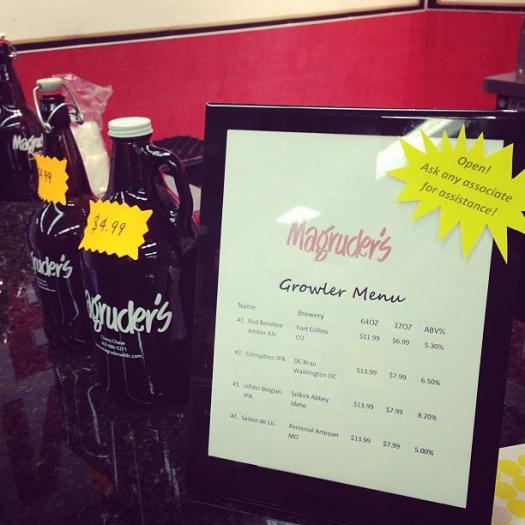 Magruder's
Growler Menu
Name Brewery 64OZ 32OZ ABV%
#1. Red Banshee Fort Collins $11.99 $6.99 5.30%
Amber Ale CO
#2. Corruption IPA DC Brau $13.99 $7.99 6.50%
Washington DC
#3. Infidel Belgian Selkirk Abbey $13.99 $7.99 8.20%
IPA Idaho
#4. Saison de Lis Perrenial Artesian $13.99 $7.99 5.00%
MO
Open!
Ask any associate
for assistance!
$4.99
Magruder's
Chevy Chase
4.99
Magruder's
Magru